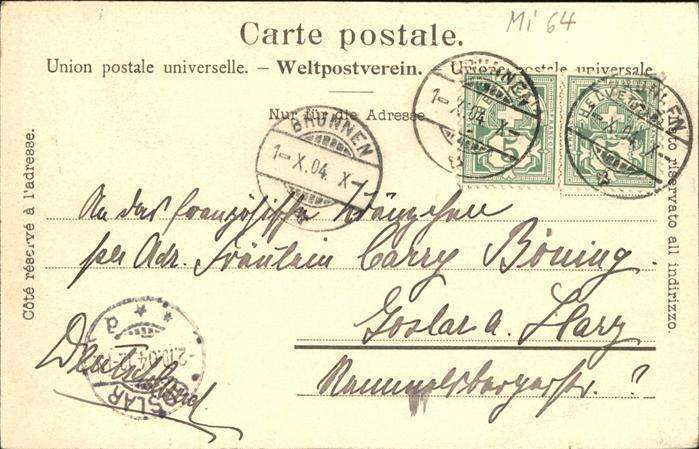 Mi 64
Carte postale.
Union postale universelle. – Weltpostverein. – Unione postale universale.
Nur für die Adresse.
BRUNNEN
1–X.04. X–
BRUNNEN
1–X.04. X–
BRUNNEN
1–X.04. X–
HELVETIA
5
5
Côté réservé à l'adresse.
Lato riservato all indirizzo.
An das französische Kränzchen
per Adr. Fräulein Carry Böning
Goslar a. Harz
Rammelsbergerstr. ?
Deutschland
GOSLAR
2.10.04